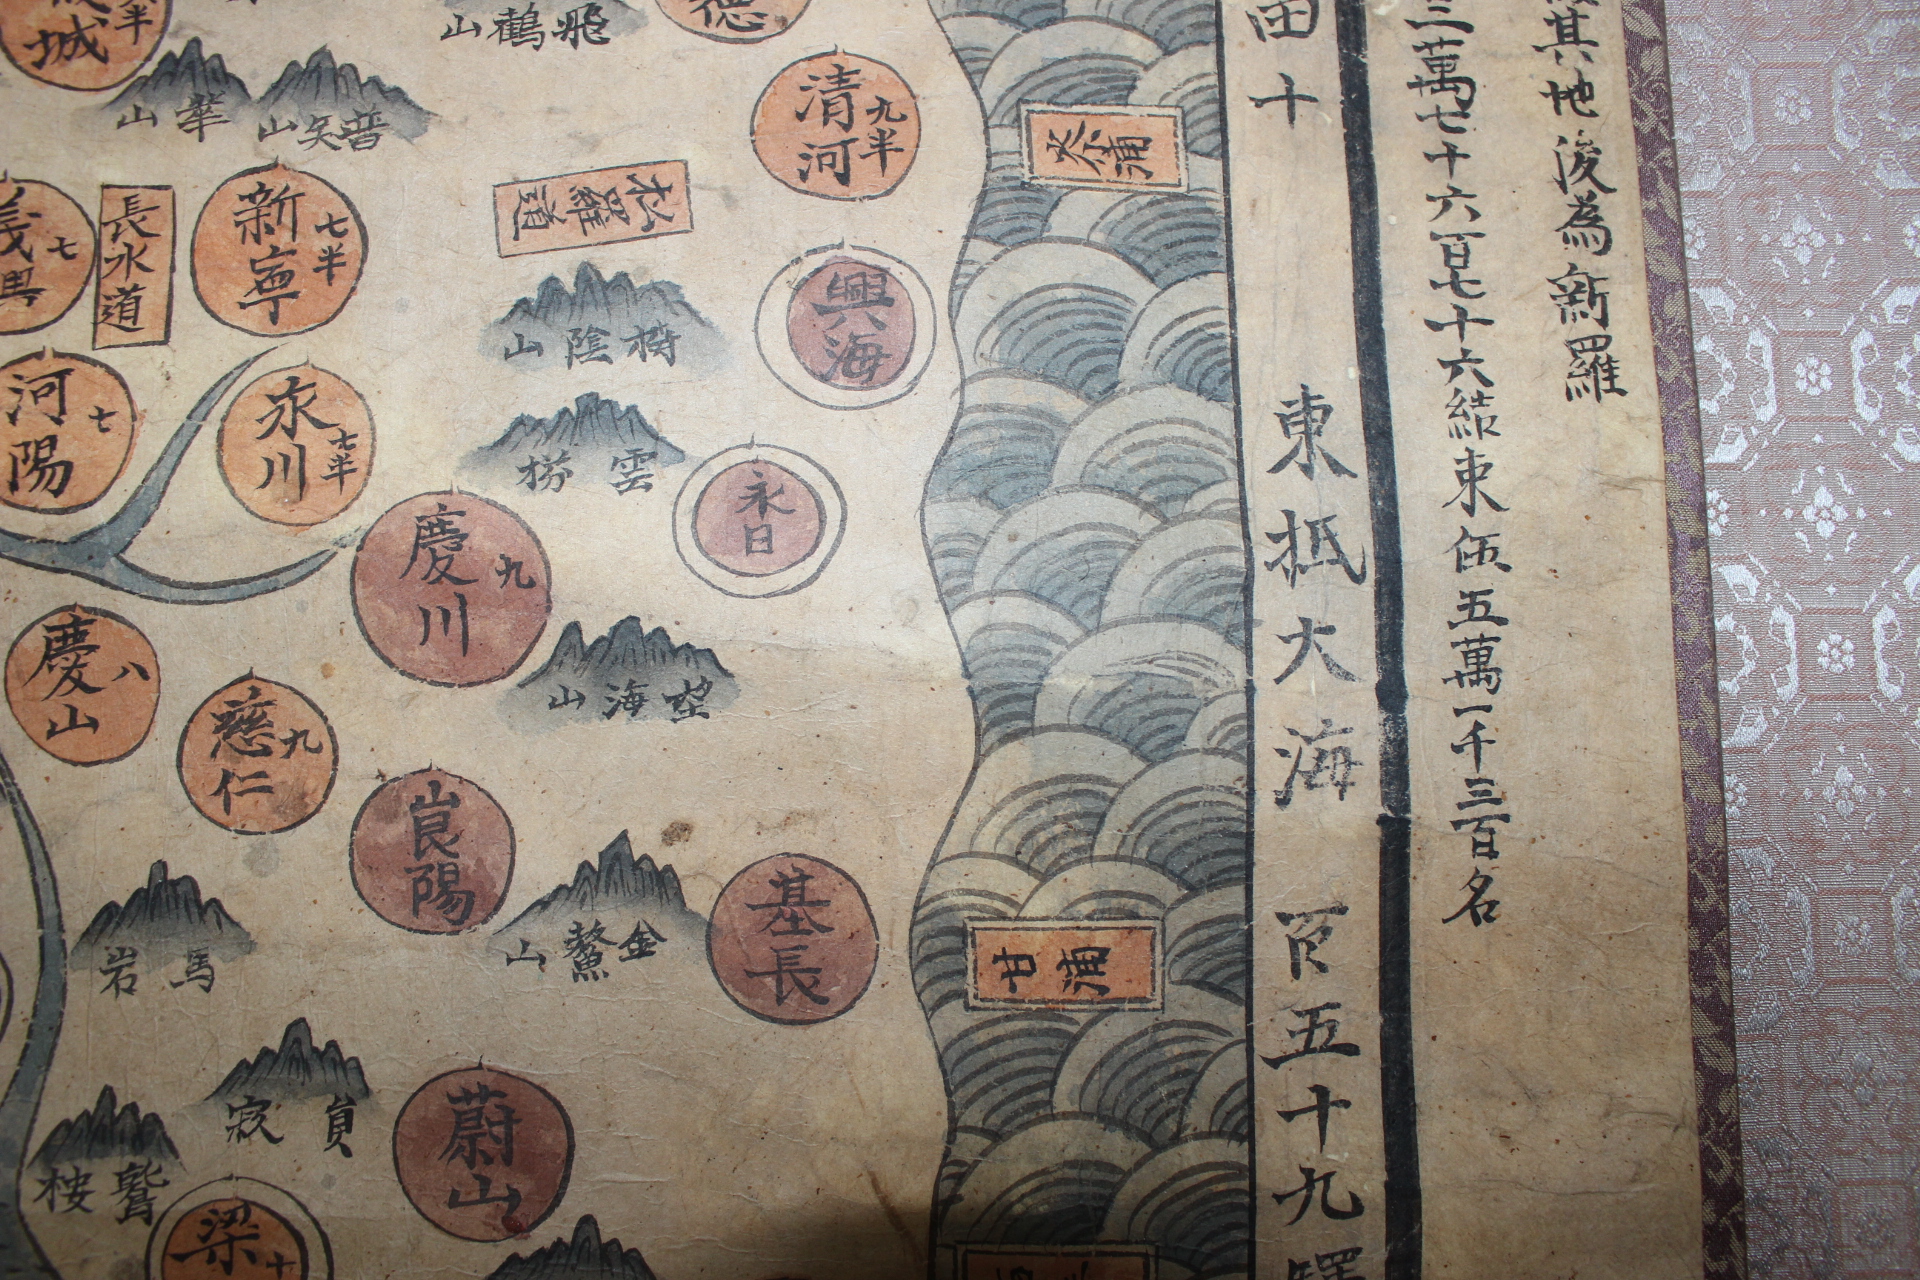 其地後為新羅
三萬七十六百七十六結束伍五萬一千三百名
田十
東抵大海
百五十九驛
德
山鶴飛
城
半
山華
山矢普
清河
九半
松羅道
新寧
七半
長水道
義興
七
山陰
興海
河陽
七
永川
七半
雲
永日
慶川
九
山海望
慶山
八
慈仁
九
陽
山鰲金
基長
甘浦
岩馬
蔚山
鷲
梁
十